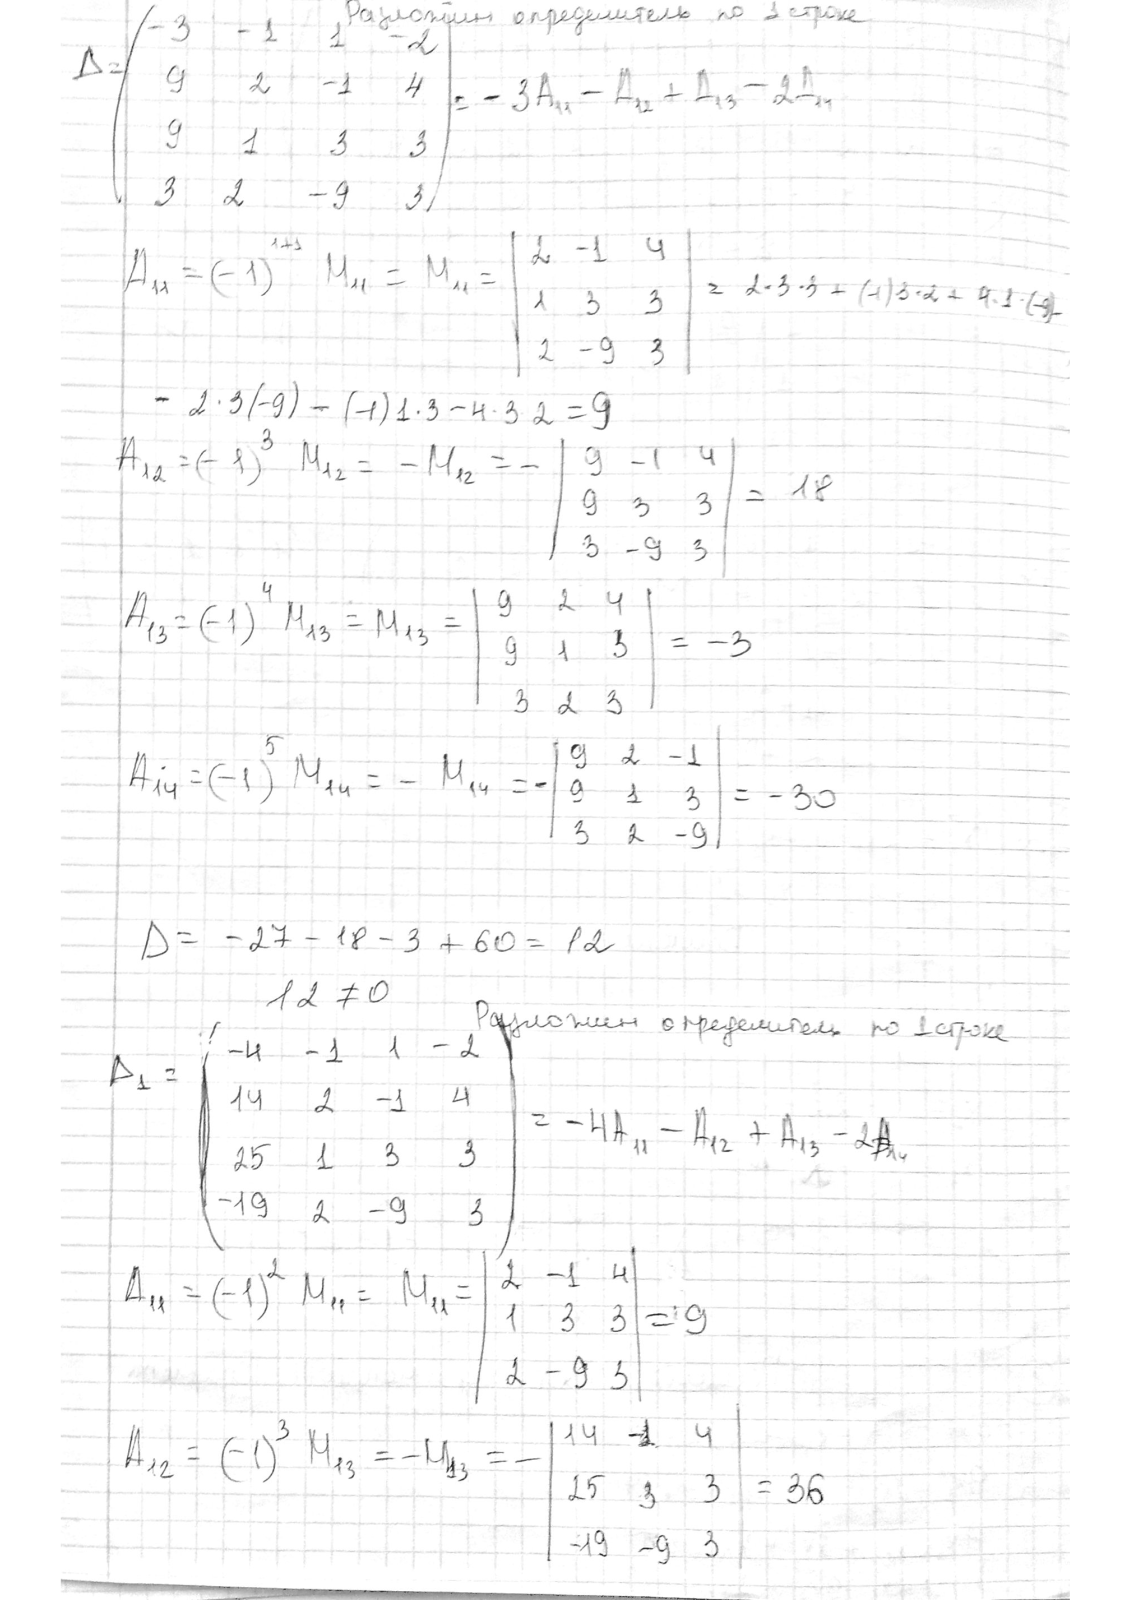 Разложим определитель по 1 строке
Δ = ( -3 -1 1 -2
9 2 -1 4
9 1 3 3
3 2 -9 3 ) = -3A₁₁ - A₁₂ + A₁₃ - 2A₁₄
A₁₁ = (-1)¹⁺¹ M₁₁ = M₁₁ = | 2 -1 4
1 3 3
2 -9 3 | = 2·3·3 + (-1)3·2 + 4·1·(-9)-
- 2·3(-9) - (-1)1·3 - 4·3 2 = 9
A₁₂ = (-1)³ M₁₂ = -M₁₂ = - | 9 -1 4
9 3 3
3 -9 3 | = 18
A₁₃ = (-1)⁴ M₁₃ = M₁₃ = | 9 2 4
9 1 3
3 2 3 | = -3
A₁₄ = (-1)⁵ M₁₄ = - M₁₄ = - | 9 2 -1
9 1 3
3 2 -9 | = -30
Δ = -27 - 18 - 3 + 60 = 12
12 ≠ 0
Разложим определитель по 1 строке
Δ₁ = ( -4 -1 1 -2
14 2 -1 4
25 1 3 3
-19 2 -9 3 ) = -4A₁₁ - A₁₂ + A₁₃ - 2A₁₄
A₁₁ = (-1)² M₁₁ = M₁₁ = | 2 -1 4
1 3 3
2 -9 3 | = 9
A₁₂ = (-1)³ M₁₃ = -M₁₃ = - | 14 -1 4
25 3 3
-19 -9 3 | = 36